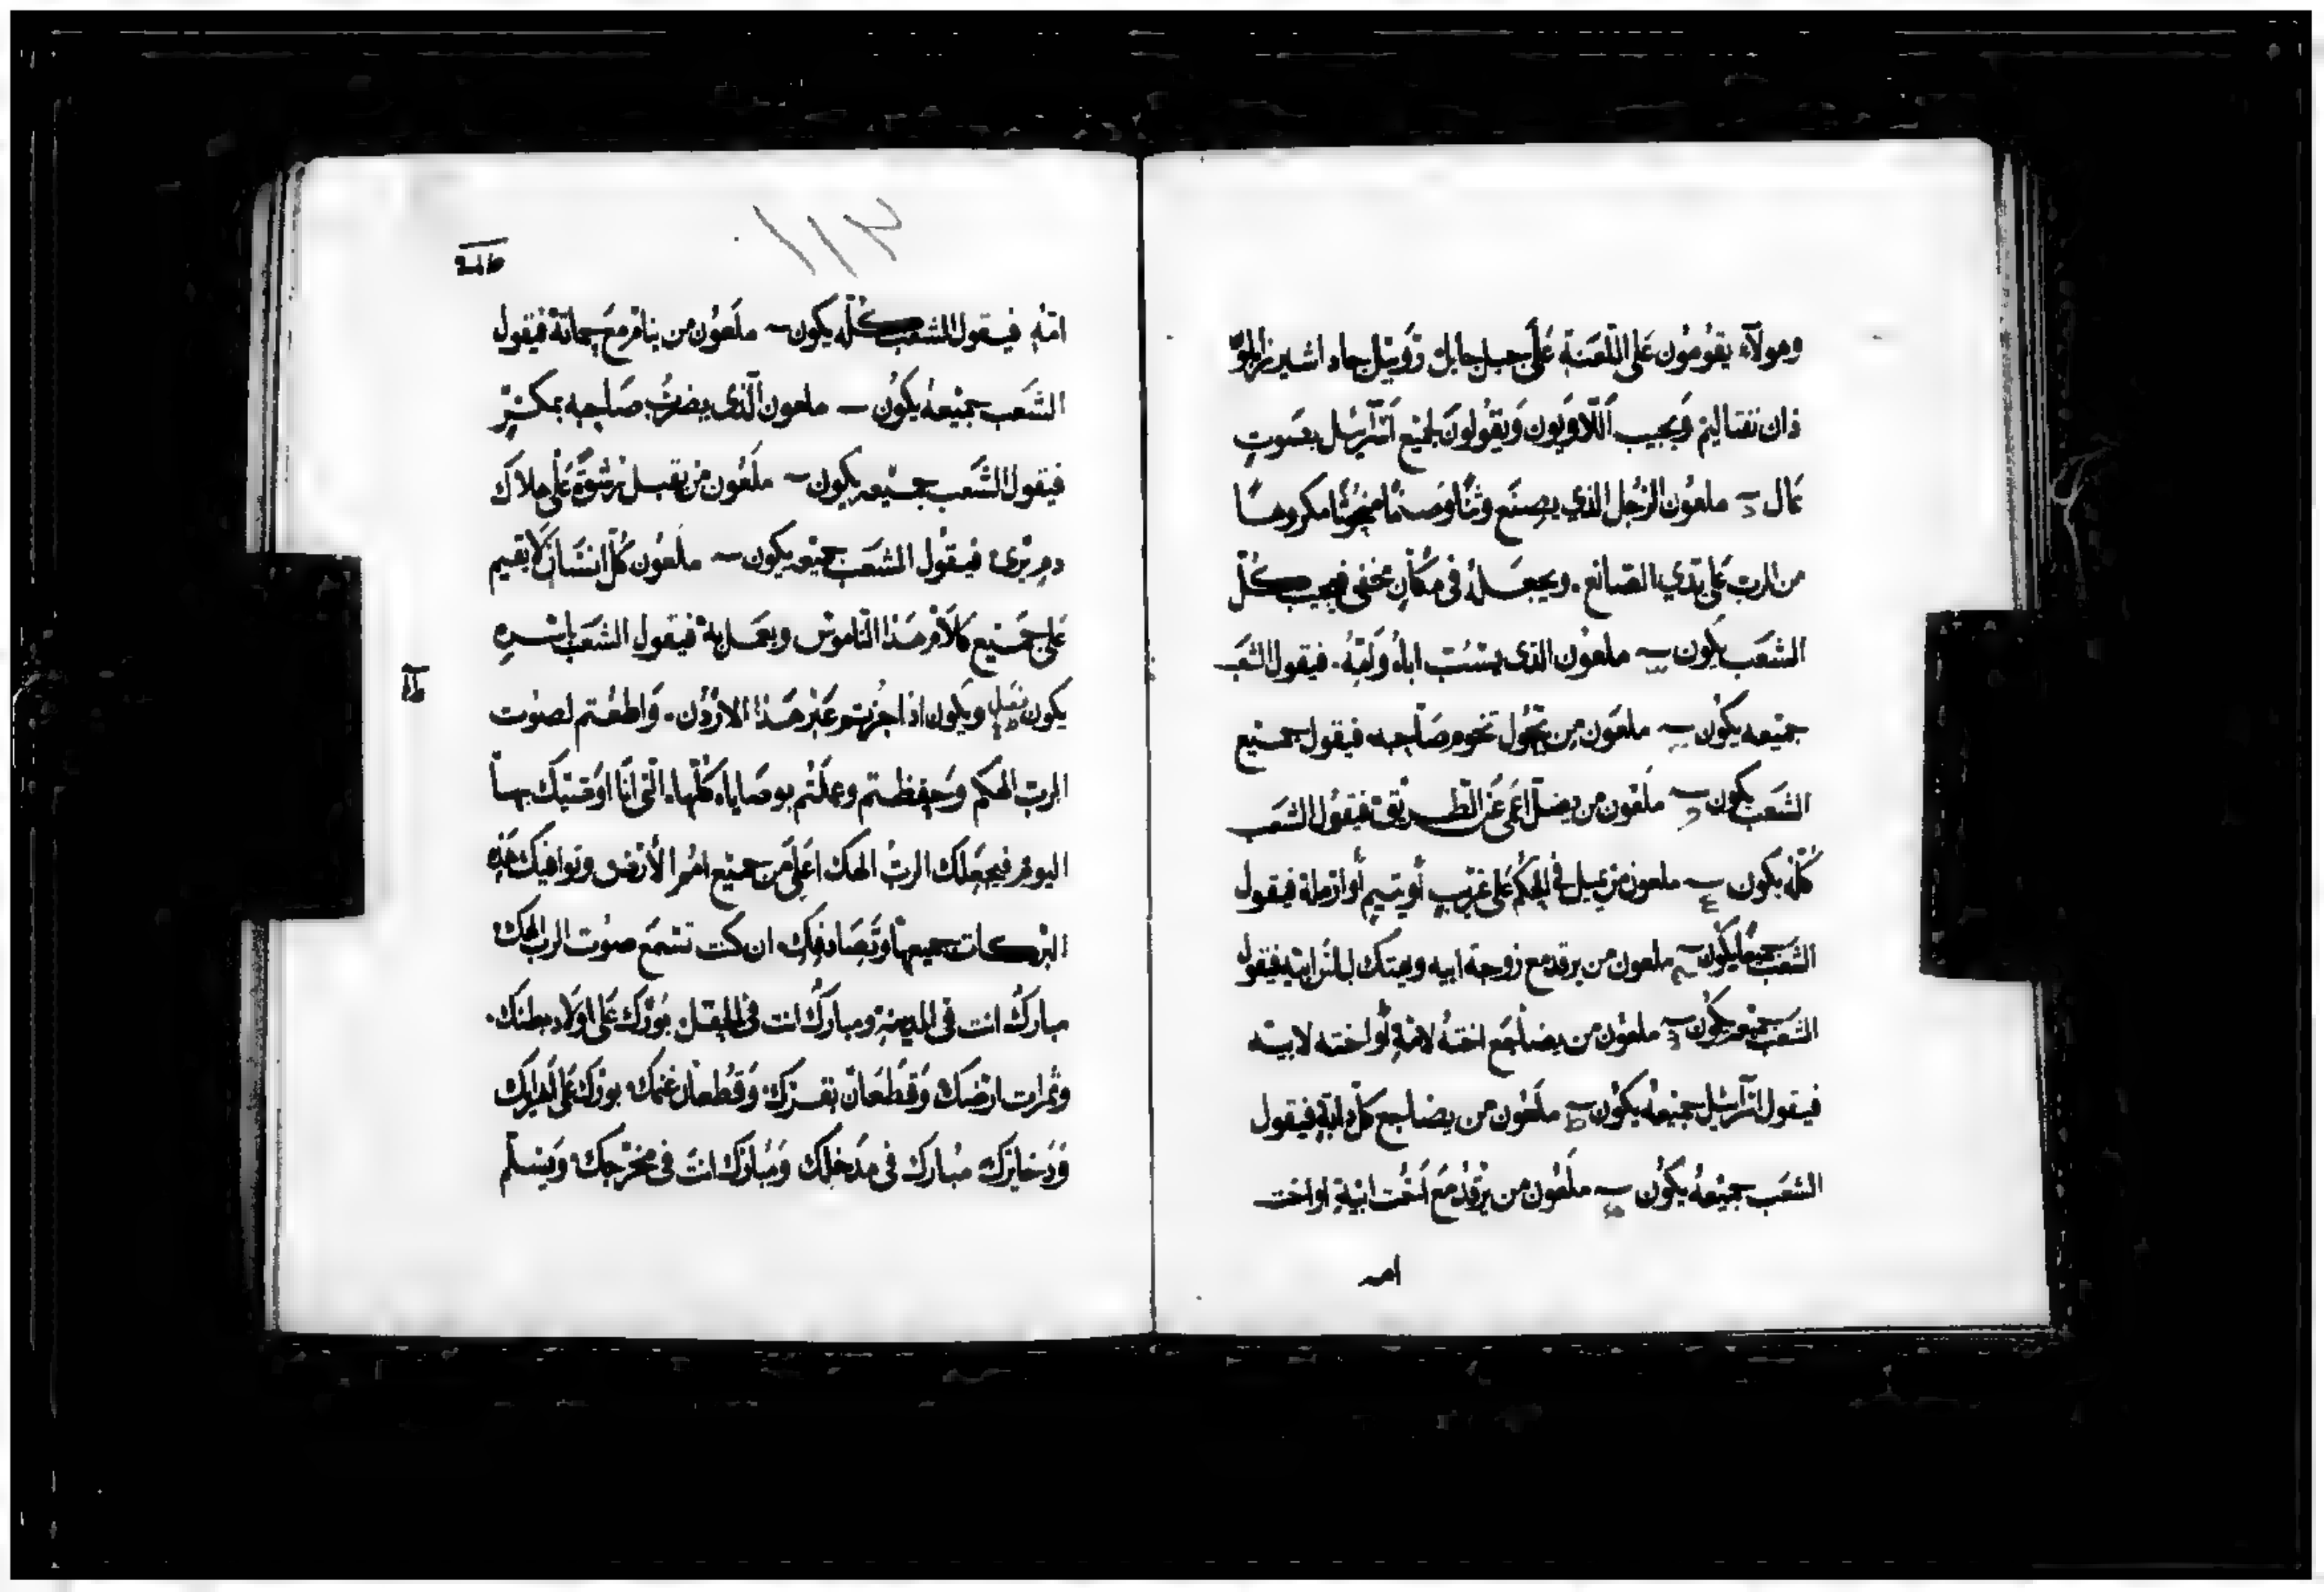 وهولآء يقومون على اللعنة على جبل جابل روبيل جاد اشير زابلون
دان نفتاليم ويجيب اللاويون ويقولون لجميع اسراييل بصوت
عال ملعون الرجل الذي يصنع وثنا وصنما منحوتا مكروها
من الرب على يدي الصانع. ويجعله في مكان مخفى فيجيب كل
الشعب يكون ملعون الذى يشتت اباه وامه. فيقول الشعب
جميعه يكون ملعون من يحول تخوم صاحبه فيقول جميع
الشعب يكون ملعون من يضل اعمى عن الطريق فيقول الشعب
كله يكون ملعون من يميل في الحكم على غريب أو يتيم أو ارملة فيقول
الشعب جميعا يكون ملعون من يرقد مع زوجة ابيه ويهتك فيقول
الشعب جميعه يكون ملعون من يضاجع اخته لامه أو اخته لابيه
فيقول اسراييل جميعه يكون ملعون من يضاجع كل دابة فيقول
الشعب جميعه يكون ملعون من يرقد مع اخت ابيه او اخت
امه
١١٢
امه فيقول الشعب كله يكون ملعون من ينام مع حماته فيقول
الشعب جميعه يكون ملعون الذى يضرب صاحبه بمكر
فيقول الشعب جميعه يكون ملعون من يقبل رشوة على هلاك
دم برئ فيقول الشعب جميعه يكون ملعون كل انسان لا يقيم
على جميع كلام هذا الناموس ويعمل به فيقول الشعب باسره
يكون ويكون اذا جزتم عبر هذا الاردن. واطعتم لصوت
الرب الهكم وحفظتم وعملتم بوصاياه كلها. التى انا اوصيك بها
اليوم فيجعلك الرب الهك اعلى من جميع امم الأرض وتوافيك هذه
البركات جميعها وتصادفك ان كنت تسمع صوت الرب الهك
مبارك انت في المدينة ومبارك انت في الحقل. بورك على اولاد بطنك.
وثمرات ارضك وقطعان بقرك وقطعان غنمك بورك على اهرايك
وذخايرك مبارك في مدخلك ومبارك انت في مخرجك ويسلم